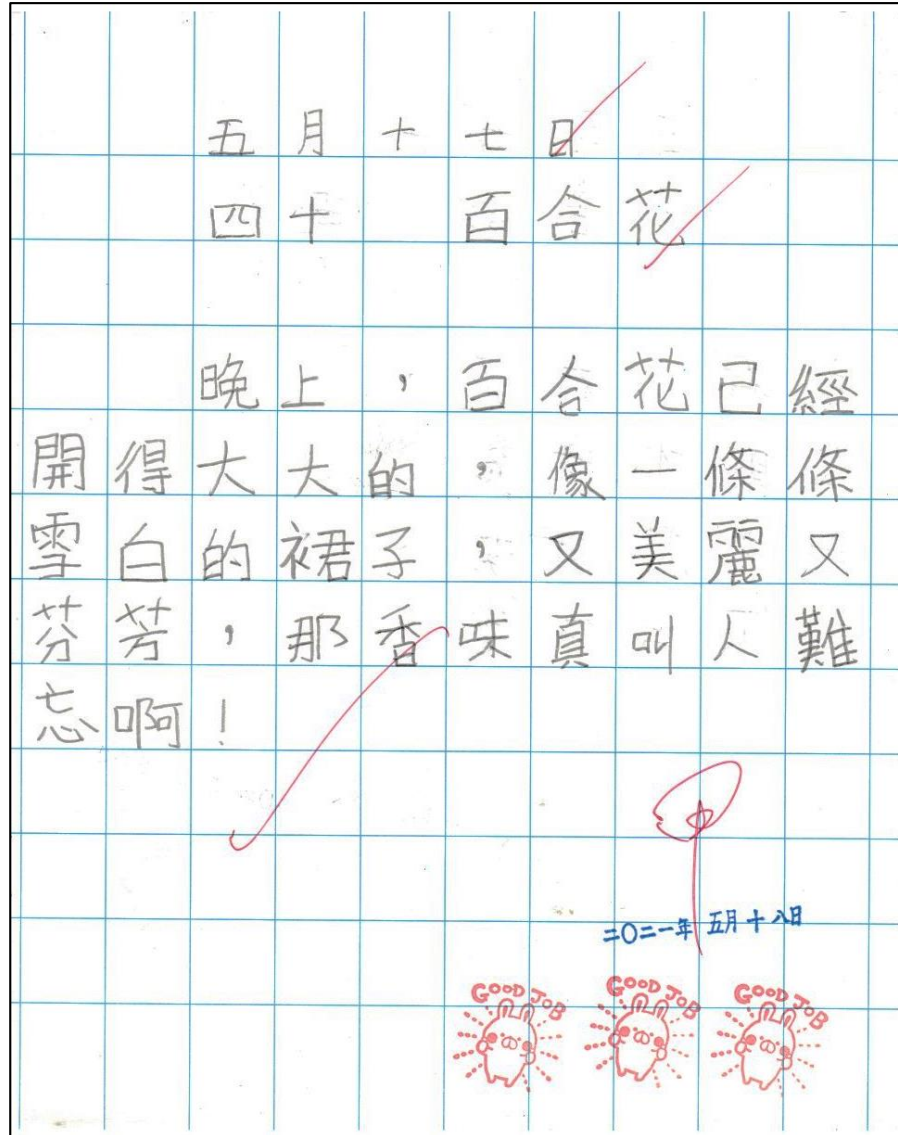 五月十七日
四十　百合花
晚上，百合花已經
開得大大的，像一條條
雪白的裙子，又美麗又
芬芳，那香味真叫人難
忘啊！
二〇二一年 五月十八日
GOOD JOB GOOD JOB GOOD JOB